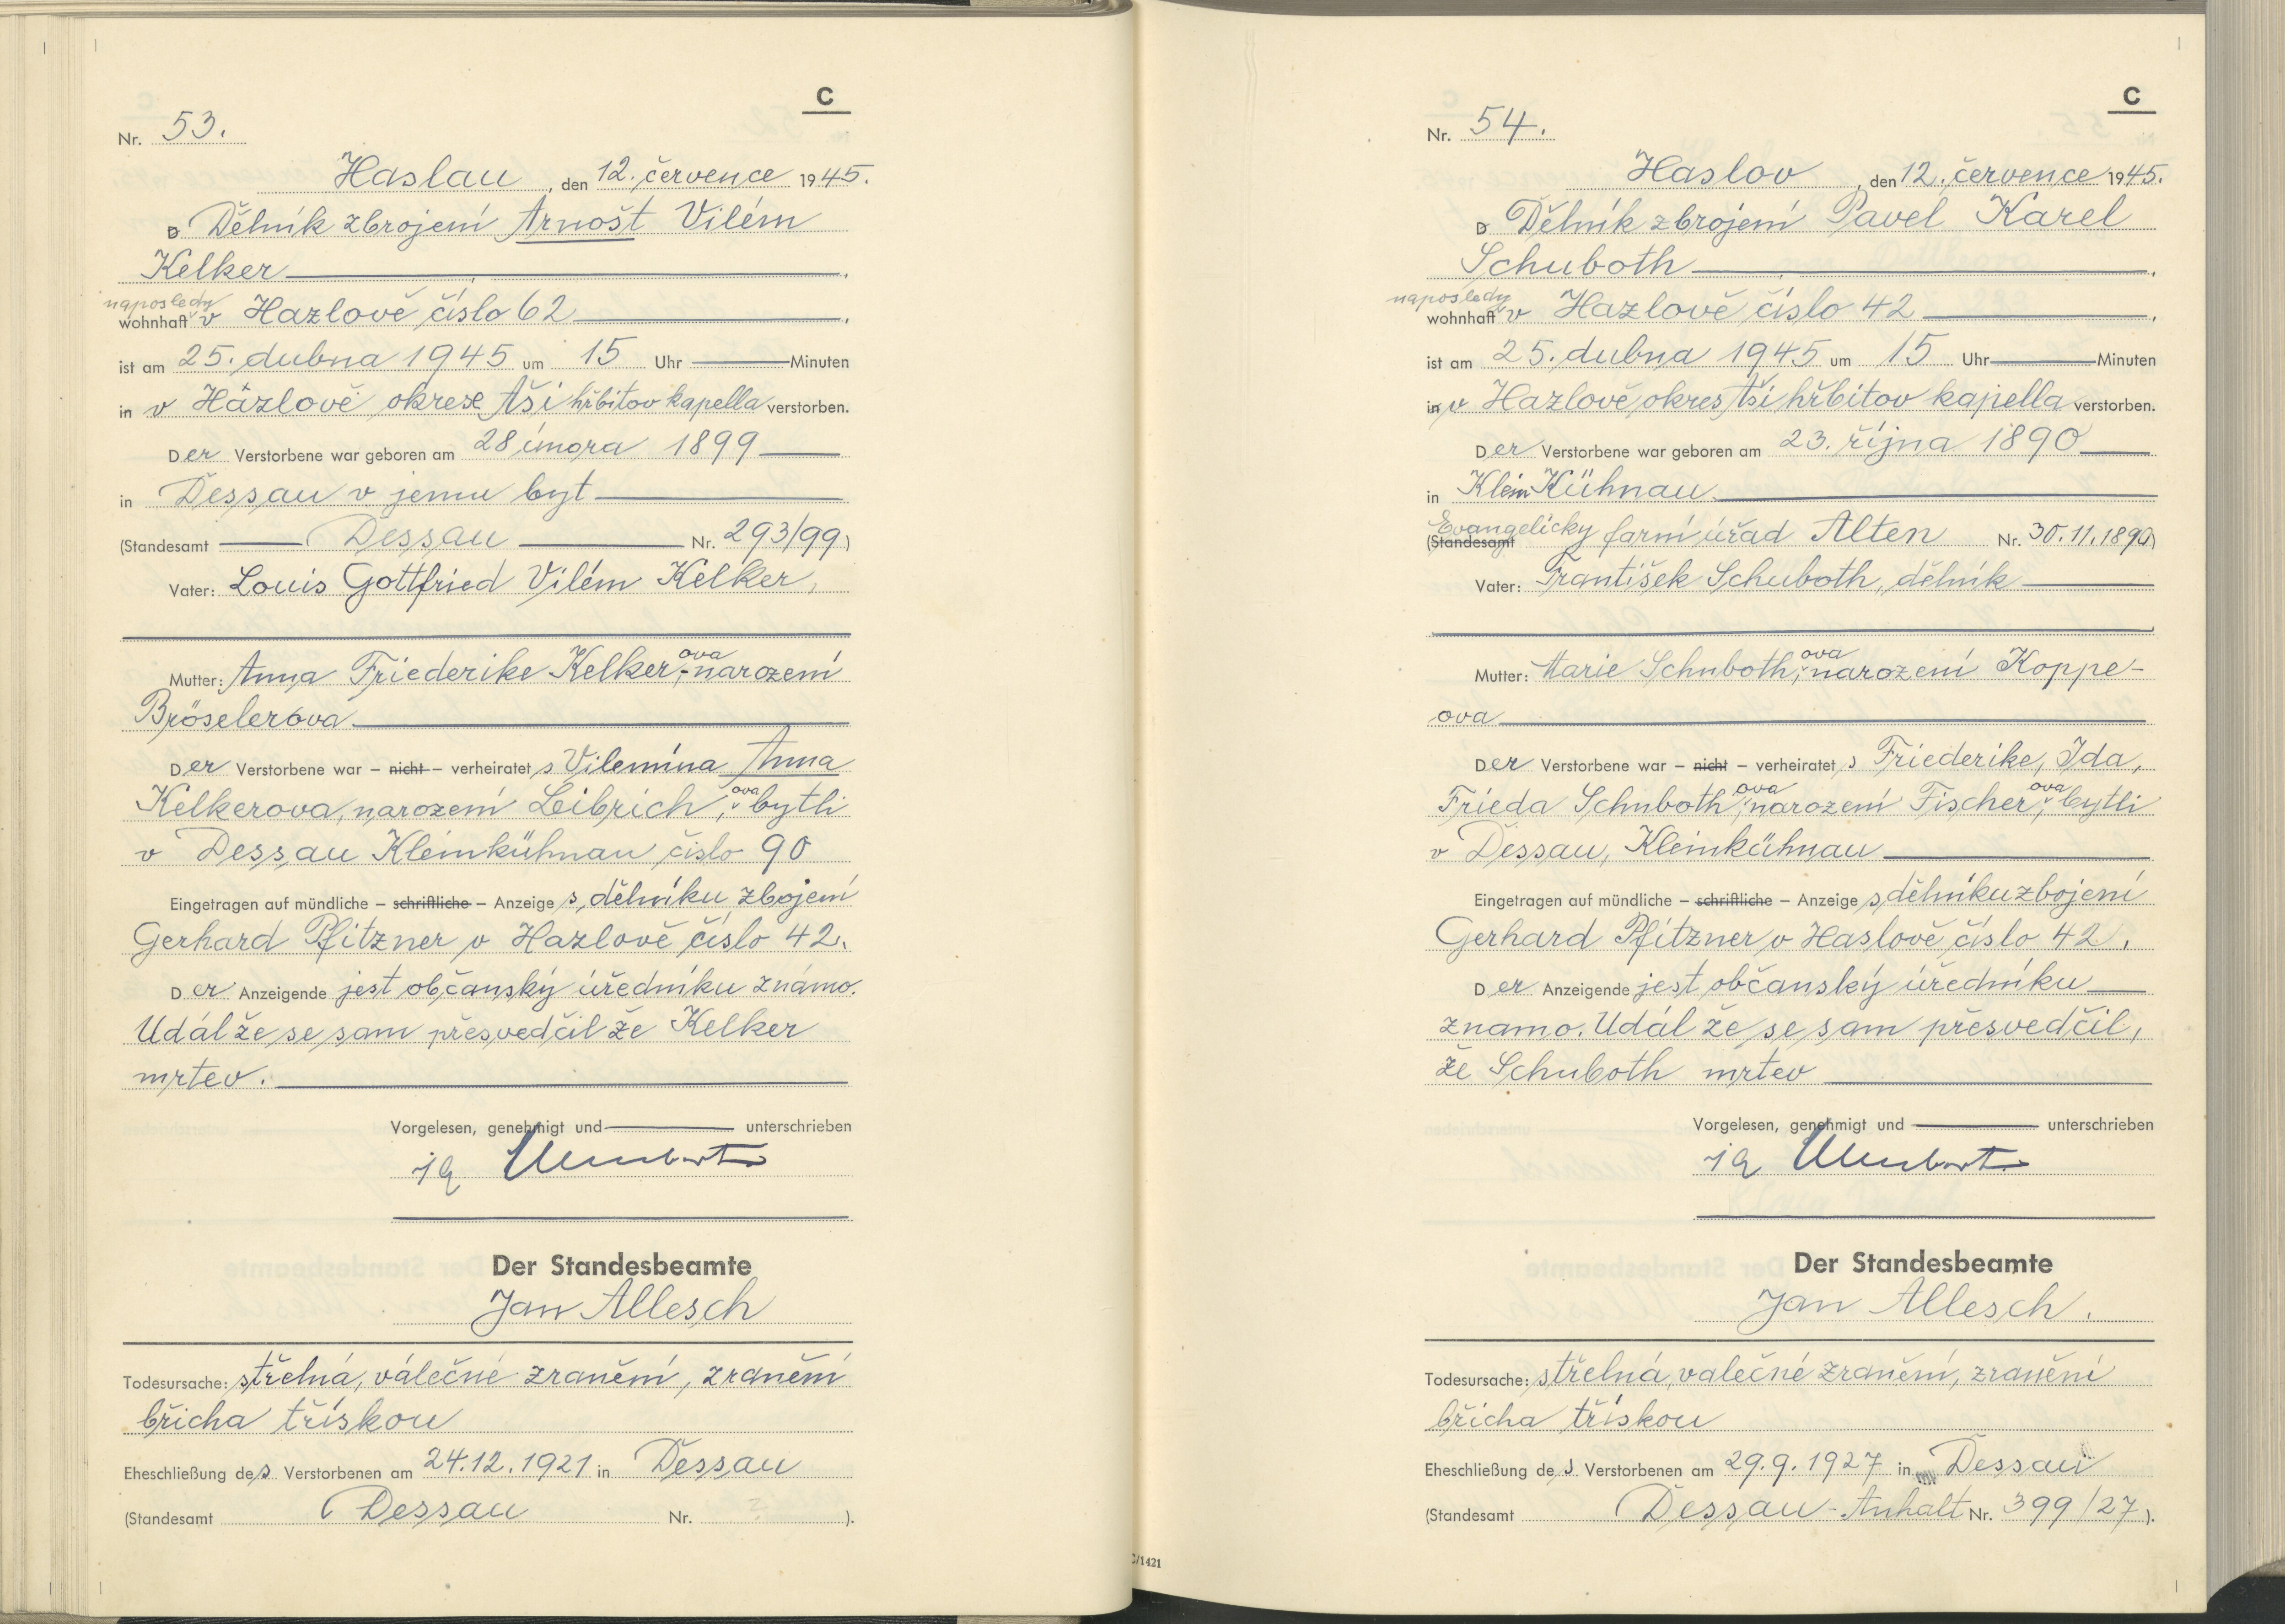 C
Nr. 53.
Haslau, den 12. července 1945.
D Dělník zbrojení Arnošt Vilém
Kelker
naposledy
wohnhaft v Hazlově číslo 62
ist am 25. dubna 1945 um 15 Uhr Minuten
in v Házlově okrese Aši hřbitov kapella verstorben.
Der Verstorbene war geboren am 28 února 1899
in Dessau v jemu byt
(Standesamt Dessau Nr. 293/99)
Vater: Louis Gottfried Vilém Kelker,
Mutter: Anna Friederike Kelkerova, narození
Bröselerova
Der Verstorbene war – nicht – verheiratet s Vilemína Anna
Kelkerova, narození Leibrichova, bytli
v Dessau Kleinkühnau číslo 90
Eingetragen auf mündliche – schriftliche – Anzeige s, dělníku zbojení
Gerhard Pfitzner v Hazlově číslo 42.
Der Anzeigende jest občanský úředníku známo.
Udál že se sam přesvedčil že Kelker
mrtev.
Vorgelesen, genehmigt und unterschrieben
Der Standesbeamte
Jan Allesch
Todesursache: střelná, válečné zranění, zranění
břicha třískou
Eheschließung des Verstorbenen am 24.12.1921 in Dessau
(Standesamt Dessau Nr. ? ).
C
Nr. 54.
Haslov, den 12. července 1945.
D Dělník zbrojení Pavel Karel
Schuboth
naposledy
wohnhaft v Hazlově číslo 42
ist am 25. dubna 1945 um 15 Uhr Minuten
in v Hazlově, okres Aši hřbitov kapella verstorben.
Der Verstorbene war geboren am 23. října 1890
in Klein Kühnau.
Evangelicky farní úřad Alten
(Standesamt Nr. 30.11.1890)
Vater: František Schuboth, dělník
Mutter: Marie Schubothova, narození Koppe-
ova
Der Verstorbene war – nicht – verheiratet s Friederike, Ida,
Frieda Schubothova, narození Fischerova, bytli
v Dessau, Kleinkühnau
Eingetragen auf mündliche – schriftliche – Anzeige s, dělníku zbojení
Gerhard Pfitzner v Haslově číslo 42.
Der Anzeigende jest občanský úředníku
znamo. Udál že se sam přesvedčil,
že Schuboth mrtev
Vorgelesen, genehmigt und unterschrieben
Der Standesbeamte
Jan Allesch.
Todesursache: střelná, valečné zranění, zranění
břicha třískou
Eheschließung des Verstorbenen am 29.9.1927 in Dessau
(Standesamt Dessau-Anhalt Nr. 399/27).
C/1421